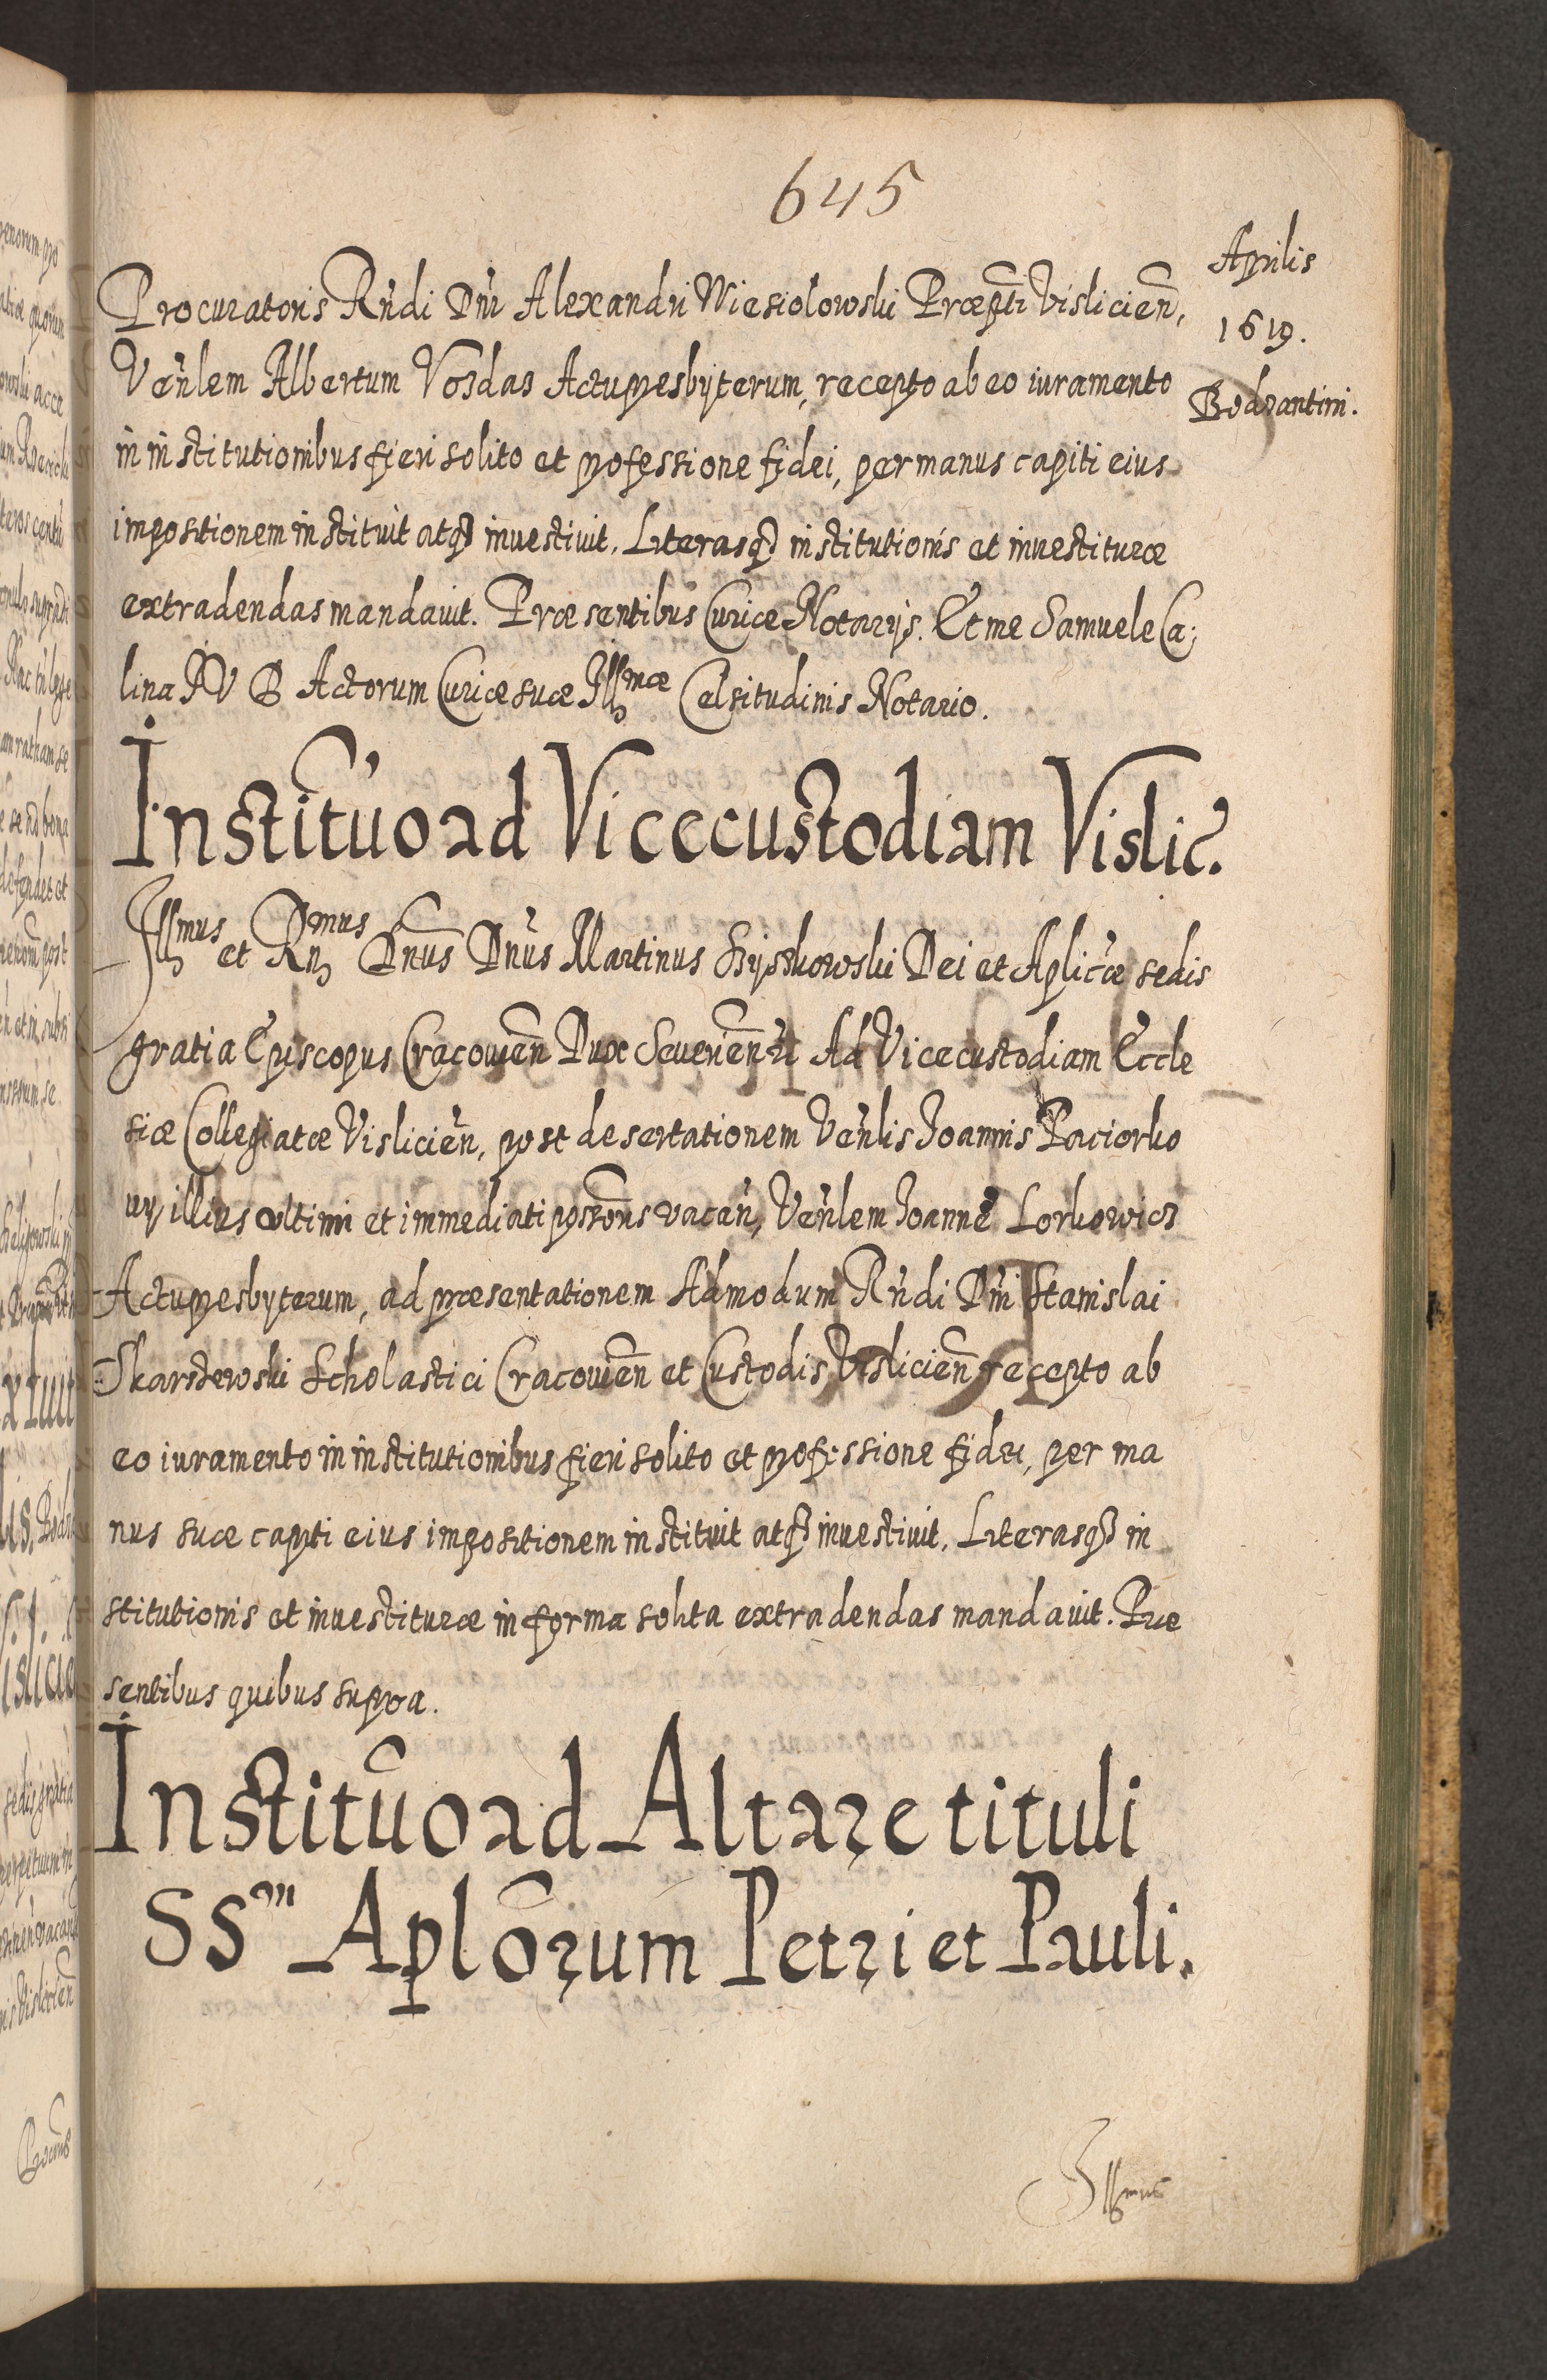 645
Aprilis
1619.
Bodzantini.
Procuratoris Rńdi Dńi Alexandri Wiesiolowski Præptı Vislicień,
Veńlem Albertum Vosdas Actupresbyterum, recepto ab eo iuramento
in institutionibus fieri solito et professione fidei, per manus capiti eius
impositionem instituit atq₃ inuestiuit. Literasq₃ institutionis et inuestituræ
extradendas mandauit. Præsentibus Curiæ Notarijs. Et me Samuele Ca;
lina I V B Actorum Curiæ suæ Illmæ Celsitudinis Notario.
Institũo ad Vicecustodiam Vislic.
Illmus et Rnmus Dnus Dnus Martinus Szyszkowski Dei et Aplicæ sedis
gratia Episcopus Cracouień Dux Seueriensıs Ad Vicecustodiam Eccle
siæ Collegiatæ Vislicień, post desertationem Veńlis Joannis Paciorko
wy illius ultimi et immediati possõris vacań, Veńlem Joannē Lorkowicz
Actupresbyterum, ad præsentationem Admodum Rńdi Dńi Stanislai
Skarszewski Scholastici Cracouień et Custodis Vislicień recepto ab
eo iuramento in institutionibus fieri solito et professione fidei, per ma
nus suæ capiti eius impositionem instituit atq₃ inuestiuit. Literasq₃ in
stitutionis et inuestituræ in forma solita extradendas mandauit. Præ
sentibus quibus supra.
Institũo ad Altare tituli
SSm Aplõrum Petri et Pauli.
Illmus